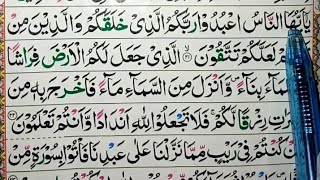 يٰٓاَيُّهَا النَّاسُ اعْبُدُوْا رَبَّكُمُ الَّذِيْ خَلَقَكُمْ وَالَّذِيْنَ مِنْ
لَعَلَّكُمْ تَتَّقُوْنَ ﴿٢١﴾ الَّذِيْ جَعَلَ لَكُمُ الْاَرْضَ فِرَاشًا
بِنَآءً وَّاَنْزَلَ مِنَ السَّمَآءِ مَآءً فَاَخْرَجَ بِهٖ مِنَ
رِزْقًا لَّكُمْ فَلَا تَجْعَلُوْا لِلّٰهِ اَنْدَادًا وَّاَنْتُمْ تَعْلَمُوْنَ ﴿٢٢﴾
كُنْتُمْ فِيْ رَيْبٍ مِّمَّا نَزَّلْنَا عَلٰى عَبْدِنَا فَاْتُوْا بِسُوْرَةٍ مِّنْ